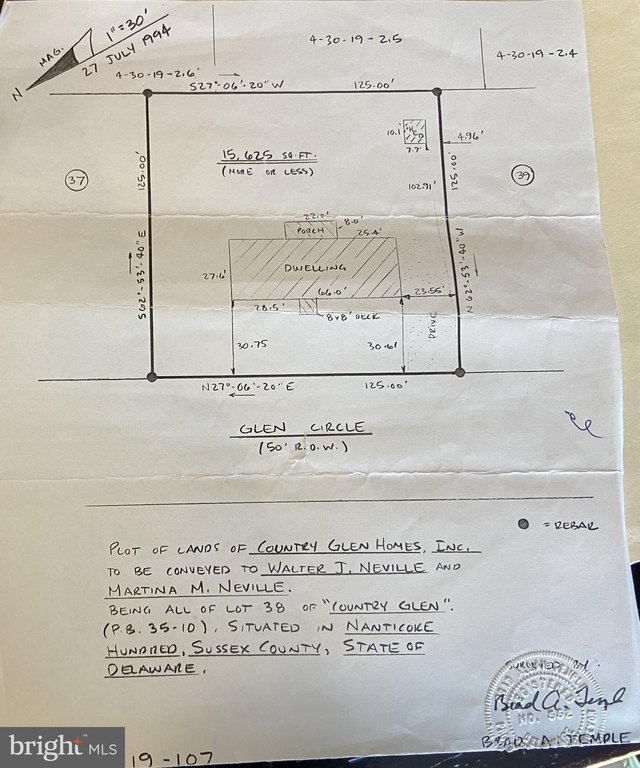 1" = 30'
MAG.
27 JULY 1994
N
4-30-19-2.6'
4-30-19-2.5
4-30-19-2.4
S27°-06'-20" W
125.00'
10.1'
SHED
7.7'
4.96'
15,625 SQ.FT.
(MORE OR LESS)
37
39
125.00'
125.00'
102.91'
S62°-53'-40" E
N62°-53'-40" W
22.0'
8.0'
PORCH
25.4'
27.6'
DWELLING
66.0'
23.55'
28.5'
8x8' DECK
DRIVE
30.75
30.61
N27°-06'-20" E
125.00'
GLEN CIRCLE
(50' R.O.W.)
= REBAR
PLOT OF LANDS OF COUNTRY GLEN HOMES, INC.
TO BE CONVEYED TO WALTER J. NEVILLE AND
MARTINA M. NEVILLE.
BEING ALL OF LOT 38 OF "COUNTRY GLEN".
(P.B. 35-10), SITUATED IN NANTICOKE
HUNDRED, SUSSEX COUNTY, STATE OF
DELAWARE.
SURVEYED BY:
REGISTERED
Brad A. Temple
NO. 552
BRAD A. TEMPLE
bright MLS
19-107